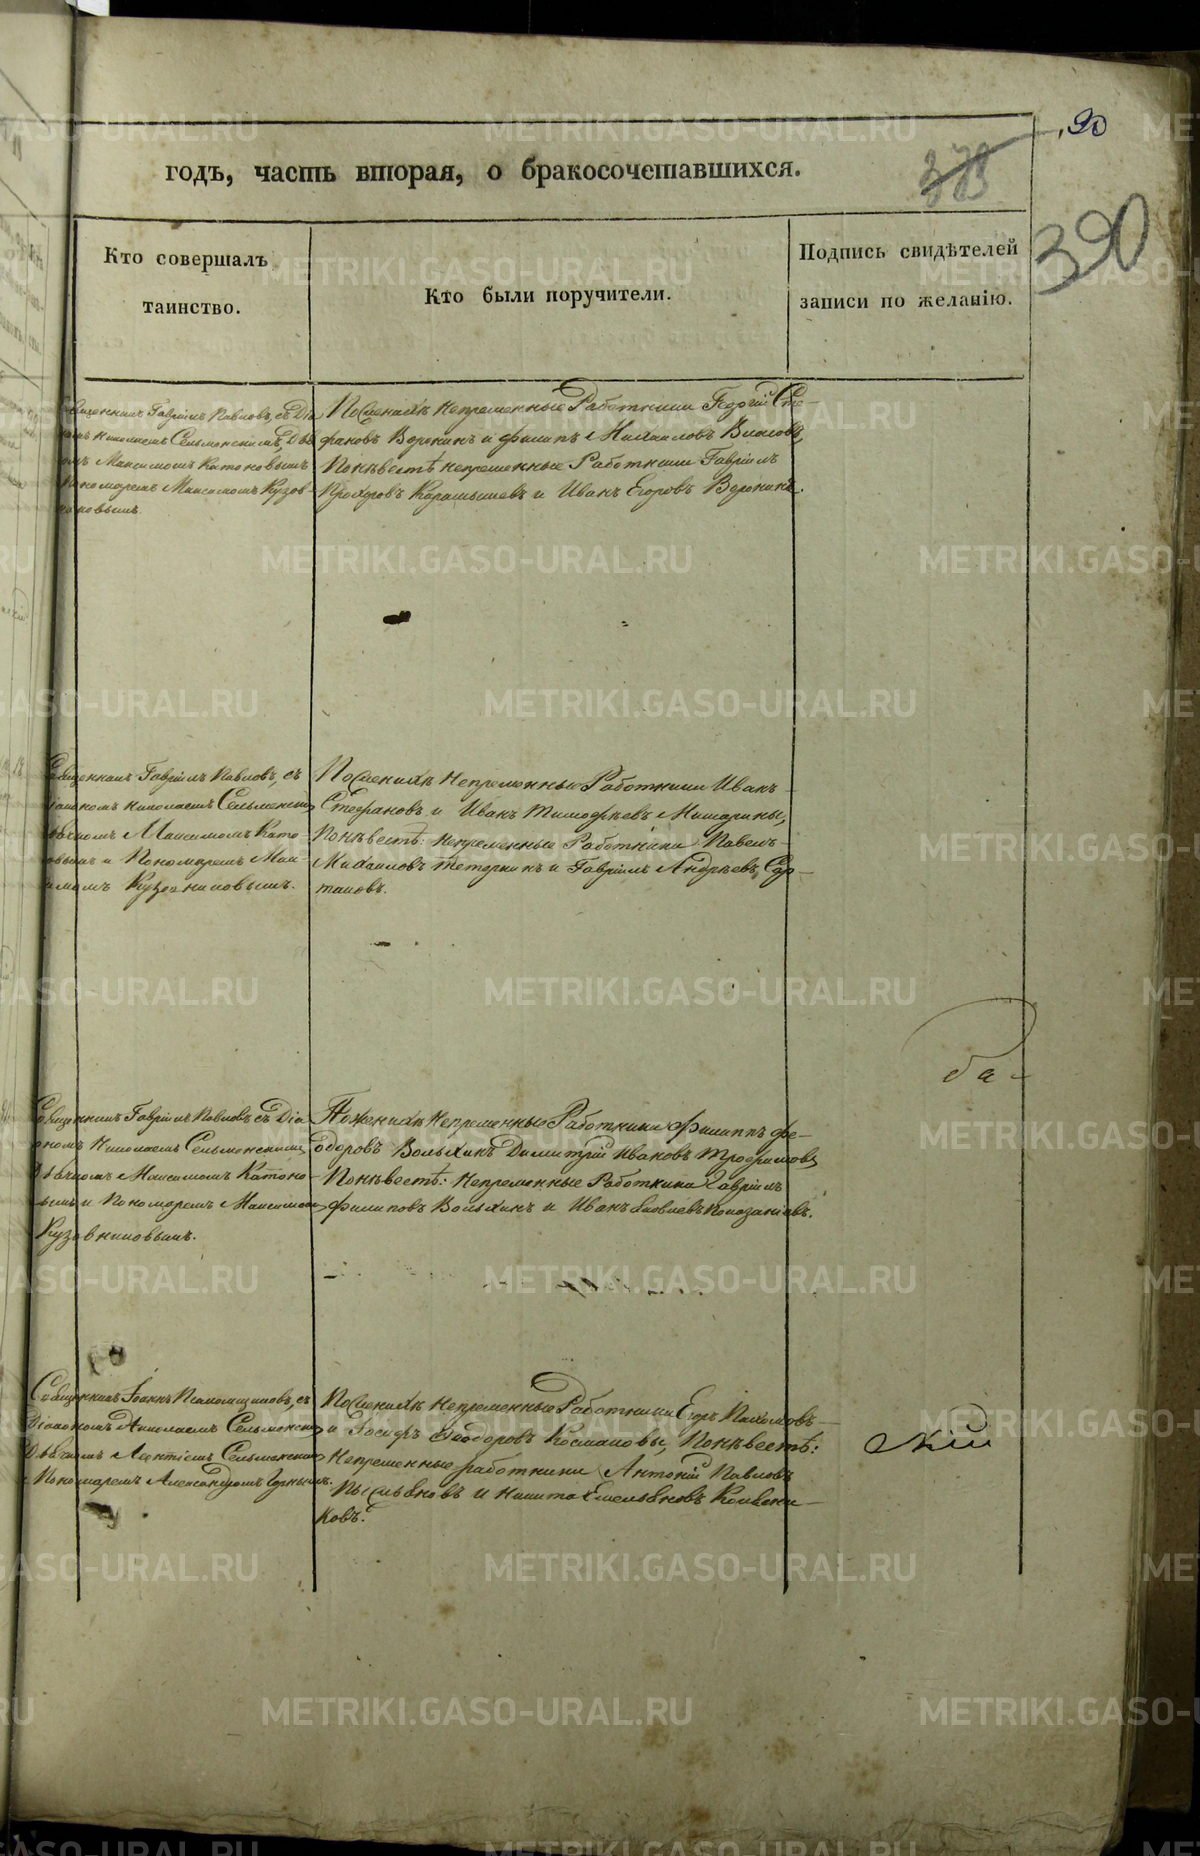 20
378
390
годъ, часть вторая, о бракосочетавшихся.
Кто совершалъ
таинство.
Кто были поручители.
Подпись свидѣтелей
записи по желанію.
Священникъ Гавріилъ Павловъ, съ Діа
кономъ Николаемъ Сельменскимъ, Дья
комъ Максимомъ Катоковымъ
Пономаремъ Максимомъ Кузов-
никовымъ.
По Женихѣ Непременные Работники Георгій Сте-
фановъ Воронинъ и Филипъ Михаиловъ Власовъ,
По невестѣ непременные Работники Гавріилъ
Прохоровъ Карамышевъ и Иванъ Егоровъ Воронинъ.
Священникъ Гавріилъ Павловъ, съ
Діакономъ Николаемъ Сельменскимъ
Дьячкомъ Максимомъ Като-
ковымъ и Пономаремъ Мак-
симомъ Кузовниковымъ.
По Женихѣ Непременные Работники Иванъ
Стефановъ и Иванъ Тимофѣевъ Мишарины,
По невестѣ: непременные Работники Павелъ
Михаиловъ Тетеркинъ и Гавріилъ Андрѣевъ Сар-
таковъ.
ба-
Священникъ Гавріилъ Павловъ съ Діа
кономъ Николаемъ Сельменскимъ
Дьячкомъ Максимомъ Катоко-
вымъ и Пономаремъ Максимомъ
Кузовниковымъ.
По Женихѣ Непременные Работники Филиппъ Фе-
одоровъ Волыхинъ Димитрій Ивановъ Трофимовъ
По невестѣ: Непременные Работники Гавріилъ
Филиповъ Волыхинъ и Иванъ Яковлевъ
Священникъ Іоаннъ съ
Діакономъ Николаемъ Сельменскимъ
Дьячкомъ Леонтіемъ Сельменскимъ
и Пономаремъ Александромъ Чернымъ.
По Женихѣ Непременные Работники Егоръ Пахомовъ
и Іосифъ Ѳеодоровъ Космаковы, По невестѣ:
Непременные работники Антоній Павловъ
и Никита Емельяновъ
ковъ.
скій
METRIKI.GASO-URAL.RU